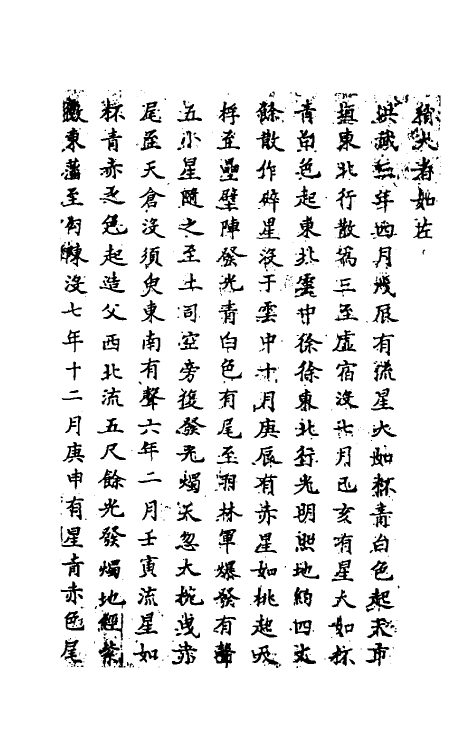 稍大者如左
洪武三年四月戊辰有流星大如杯青白色起天市
垣東北行散為三至虛宿沒七月己亥有星大如杯
青白色起東北雲中徐徐東北行光明照地約四丈
餘散作碎星沒于雲中十月庚辰有赤星如桃起天
桴至壘壁陣發光青白色有尾至羽林軍爆發有聲
五小星隨之至土司空旁後發光燭天忽大椀炗赤
尾至天倉沒須臾東南有聲六年二月壬寅流星如
杯青赤色起造父西北流五尺餘光發燭地經紫
微東藩至勾陳沒七年十二月庚申有星青赤色尾